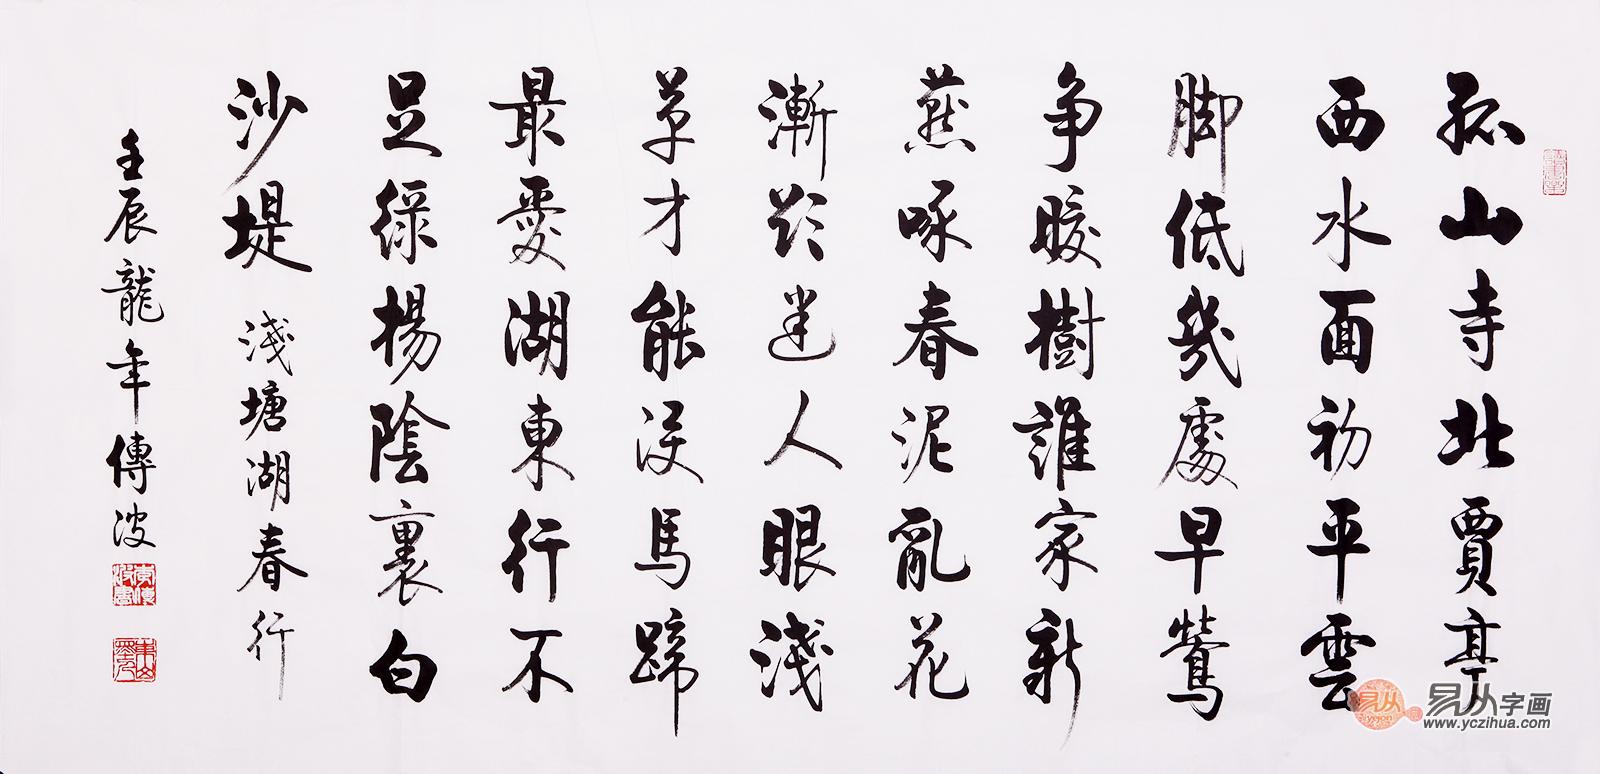 孤山寺北賈亭
西水面初平雲
脚低幾處早鶯
争暖樹誰家新
燕啄春泥亂花
漸欲迷人眼淺
草才能没馬蹄
最愛湖東行不
足緑楊陰裏白
沙堤 淺塘湖春行
壬辰龍年傳波
易从字画
www.yczihua.com